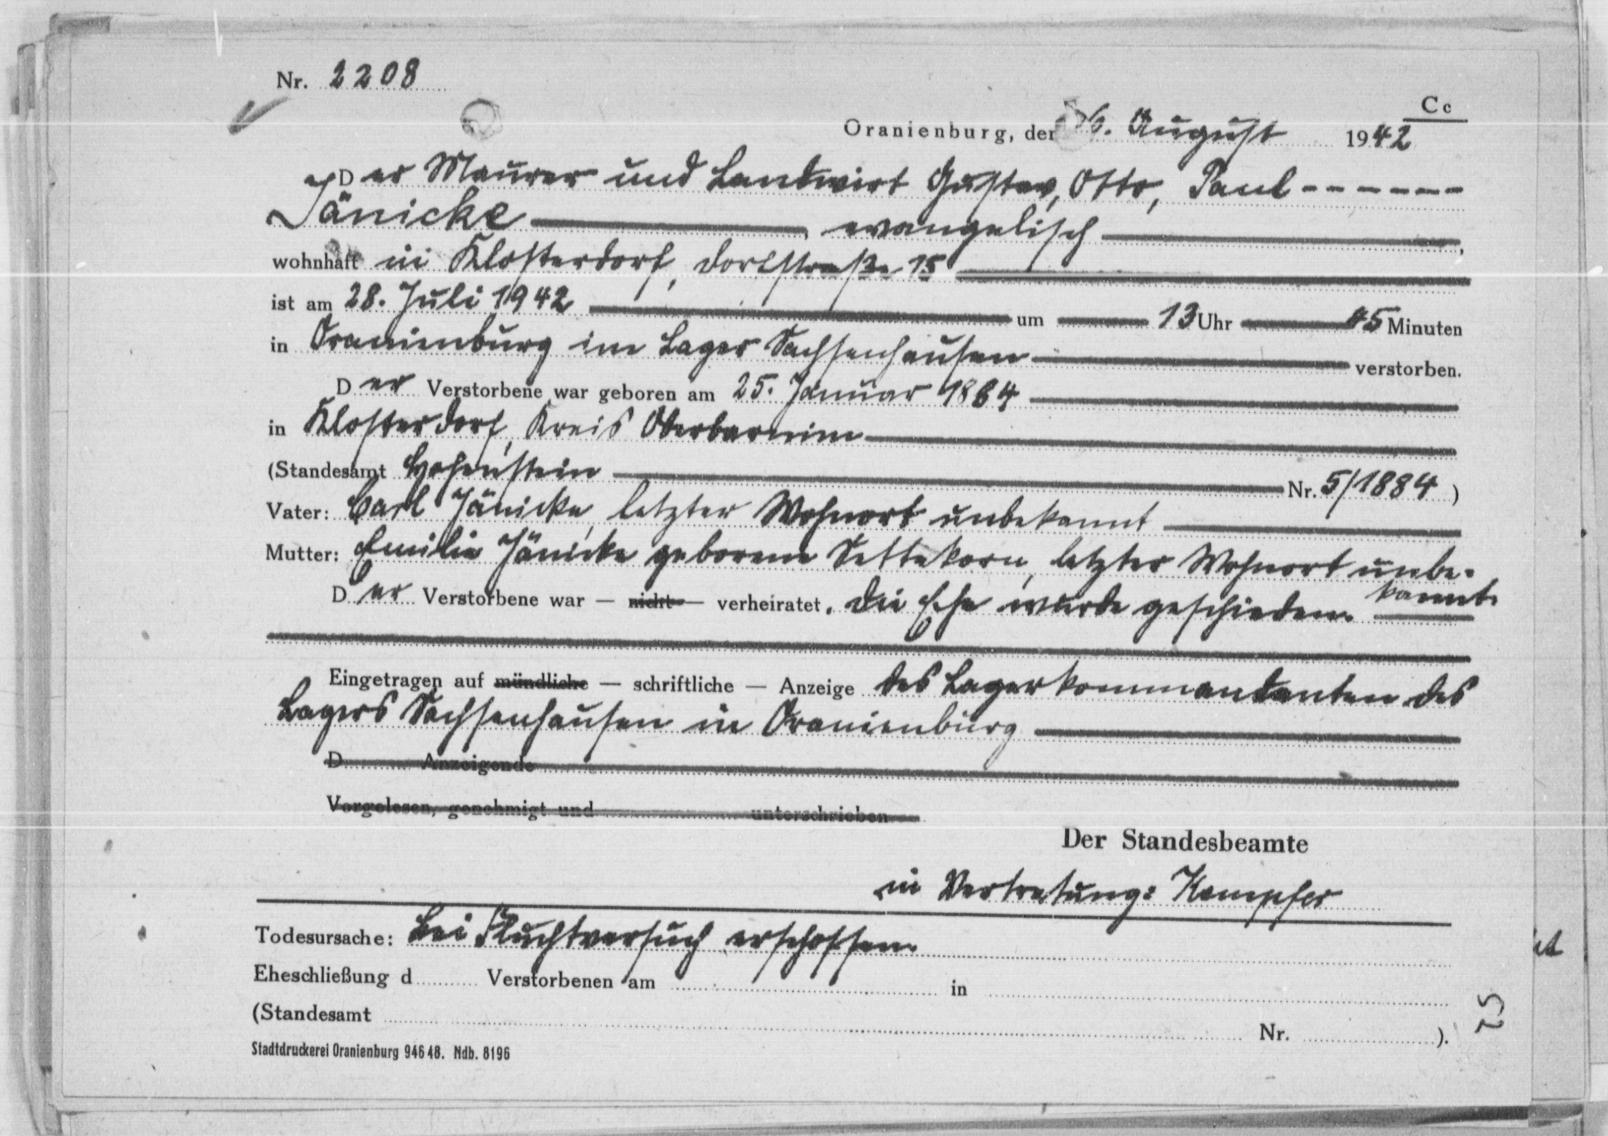 Nr. 2208
Cc
Oranienburg, den 6. August 1942
Der Maurer und Landwirt Gustav, Otto, Paul - - - - - -
Jänicke evangelisch
wohnhaft in Klosterdorf, Dorfstraße 15
ist am 28. Juli 1942 um 13 Uhr 45 Minuten
in Oranienburg im Lager Sachsenhausen verstorben.
Der Verstorbene war geboren am 25. Januar 1884
in Klosterdorf, Kreis Oberbarnim
(Standesamt Hohenstein Nr. 5/1884 )
Vater: Carl Jänicke, letzter Wohnort unbekannt
Mutter: Emilie Jänicke geborene Settekorn, letzter Wohnort unbe-
kannt.
Der Verstorbene war — nicht — verheiratet. Die Ehe wurde geschieden.
Eingetragen auf mündliche — schriftliche — Anzeige des Lagerkommandanten des
Lagers Sachsenhausen in Oranienburg
D Anzeigende
Vorgelesen, genehmigt und unterschrieben
Der Standesbeamte
in Vertretung: Kempfer
Todesursache: Bei Fluchtversuch erschossen.
Eheschließung d Verstorbenen am in
(Standesamt Nr. ).
Stadtdruckerei Oranienburg 946 48. Ndb. 8196